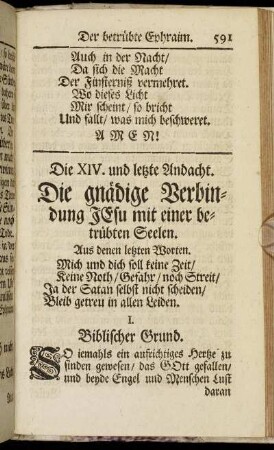 Der betrübte Ephraim. 591
Auch in der Nacht/
Da sich die Macht
Der Finsterniß vermehret.
Wo dieses Licht
Mir scheint/ so bricht
Und fallt/ was mich beschweret.
AMEN!
Die XIV. und letzte Andacht.
Die gnädige Verbin-
dung JEsu mit einer be-
trübten Seelen.
Aus denen letzten Worten.
Mich und dich soll keine Zeit/
Keine Noth/ Gefahr/ noch Streit/
Ja der Satan selbst nicht scheiden/
Bleib getreu in allen Leiden.
I.
Biblischer Grund.
SO jemahls ein aufrichtiges Hertze zu
finden gewesen/ das GOtt gefallen/
und beyde Engel und Menschen Lust
daran